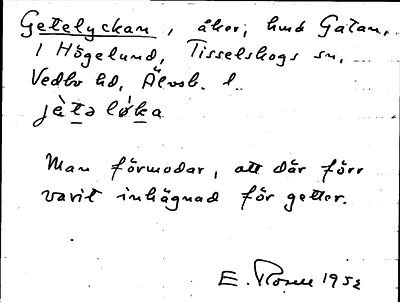 Getelyckan, åker, hmd Gatan,
1 Högelund, Tisselskogs sn,
Vedbo hd, Älvsb. l.
jètə lø̀ka
Man förmodar, att där förr
varit inhägnad för getter.
E. Rosell 1952